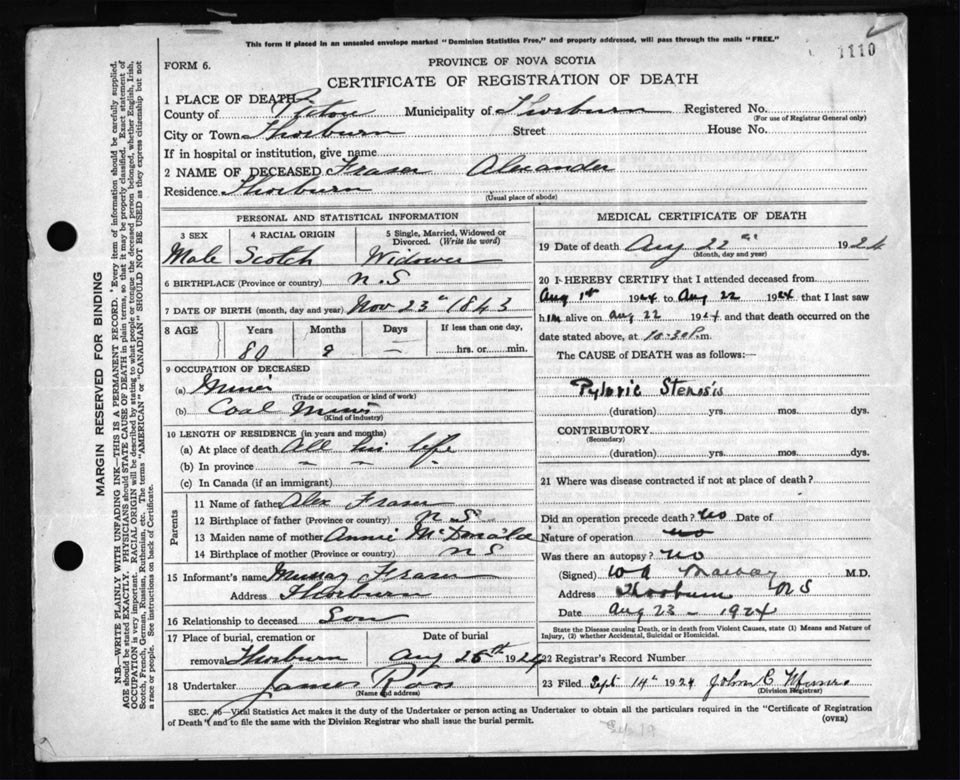 This form if placed in an unsealed envelope marked "Dominion Statistics Free," and properly addressed, will pass through the mails "FREE."
1110
FORM 6.
PROVINCE OF NOVA SCOTIA
CERTIFICATE OF REGISTRATION OF DEATH
1 PLACE OF DEATH
County of Pictou Municipality of Thorburn Registered No.
(For use of Registrar General only)
City or Town Thorburn Street House No.
If in hospital or institution, give name
2 NAME OF DECEASED Fraser Alexander
Residence Thorburn
(Usual place of abode)
PERSONAL AND STATISTICAL INFORMATION
3 SEX 4 RACIAL ORIGIN 5 Single, Married, Widowed or Divorced. (Write the word)
Male Scotch Widower
6 BIRTHPLACE (Province or country) N.S
7 DATE OF BIRTH (month, day and year) Nov 23rd 1843
8 AGE Years Months Days If less than one day,
80 9 — hrs. or min.
9 OCCUPATION OF DECEASED
(a) Miner
(Trade or occupation or kind of work)
(b) Coal Mines
(Kind of industry)
10 LENGTH OF RESIDENCE (in years and months)
(a) At place of death All his life
(b) In province — — —
(c) In Canada (if an immigrant)
Parents
11 Name of father Alex Fraser
12 Birthplace of father (Province or country) N.S.
13 Maiden name of mother Annie McDonald
14 Birthplace of mother (Province or country) N.S
15 Informant's name Murray Fraser
Address Thorburn
16 Relationship to deceased Son
17 Place of burial, cremation or removal Thorburn Date of burial Aug 25th 1924
18 Undertaker James Ross
(Name and address)
MEDICAL CERTIFICATE OF DEATH
19 Date of death Aug 22nd 1924
(Month, day and year)
20 I HEREBY CERTIFY that I attended deceased from
Aug 1st 1924 to Aug 22 1924 that I last saw
him alive on Aug 22 1924 and that death occurred on the
date stated above, at 10.30 P.m.
The CAUSE of DEATH was as follows:—
Pyloric Stenosis
(duration) yrs. mos. dys.
CONTRIBUTORY
(Secondary)
(duration) yrs. mos. dys.
21 Where was disease contracted if not at place of death?
Did an operation precede death? No Date of
Nature of operation no
Was there an autopsy? no
(Signed) M.D.
Address Thorburn NS
Date Aug 23 - 1924
State the Disease causing Death, or in death from Violent Causes, state (1) Means and Nature of Injury, (2) whether Accidental, Suicidal or Homicidal.
22 Registrar's Record Number
23 Filed Sept 14th 1924 John C
(Division Registrar)
SEC. 46—Vital Statistics Act makes it the duty of the Undertaker or person acting as Undertaker to obtain all the particulars required in the "Certificate of Registration
of Death" and to file the same with the Division Registrar who shall issue the burial permit.
(OVER)
MARGIN RESERVED FOR BINDING
N.B.—WRITE PLAINLY, WITH UNFADING INK—THIS IS A PERMANENT RECORD. Every item of information should be carefully supplied.
AGE should be stated EXACTLY. PHYSICIANS should STATE CAUSE OF DEATH in plain terms, so that it may be properly classified. Exact statement of
OCCUPATION is very important. RACIAL ORIGIN will be described by stating to what people or tongue the deceased person belonged, whether English, Irish,
Scotch, French, German, Russian, Ruthenian, etc. The terms "AMERICAN" or "CANADIAN" SHOULD NOT BE USED as they express citizenship but not
a race or people. See instructions on back of Certificate.